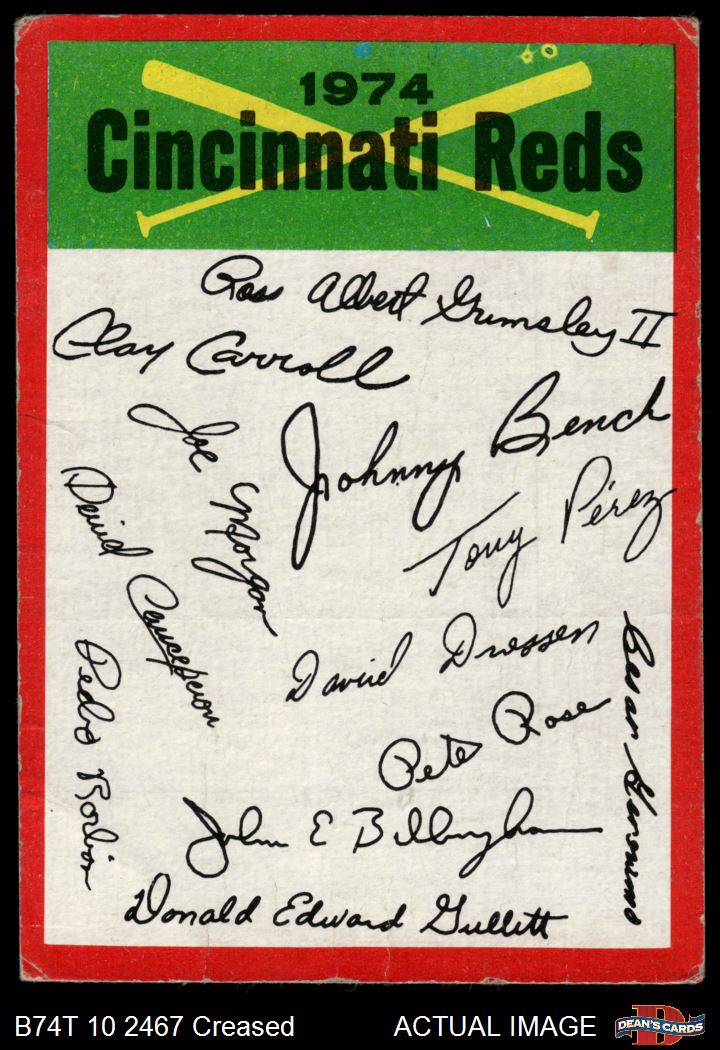 1974
Cincinnati Reds
Ross Albert Grimsley II
Clay Carroll
Johnny Bench
Joe Morgan
Tony Pérez
David Concepcion
David Driessen
Pedro Borbon
Pete Rose
John E Billingham
Donald Edward Gullett
B74T 10 2467 Creased
ACTUAL IMAGE
DEAN'S CARDS